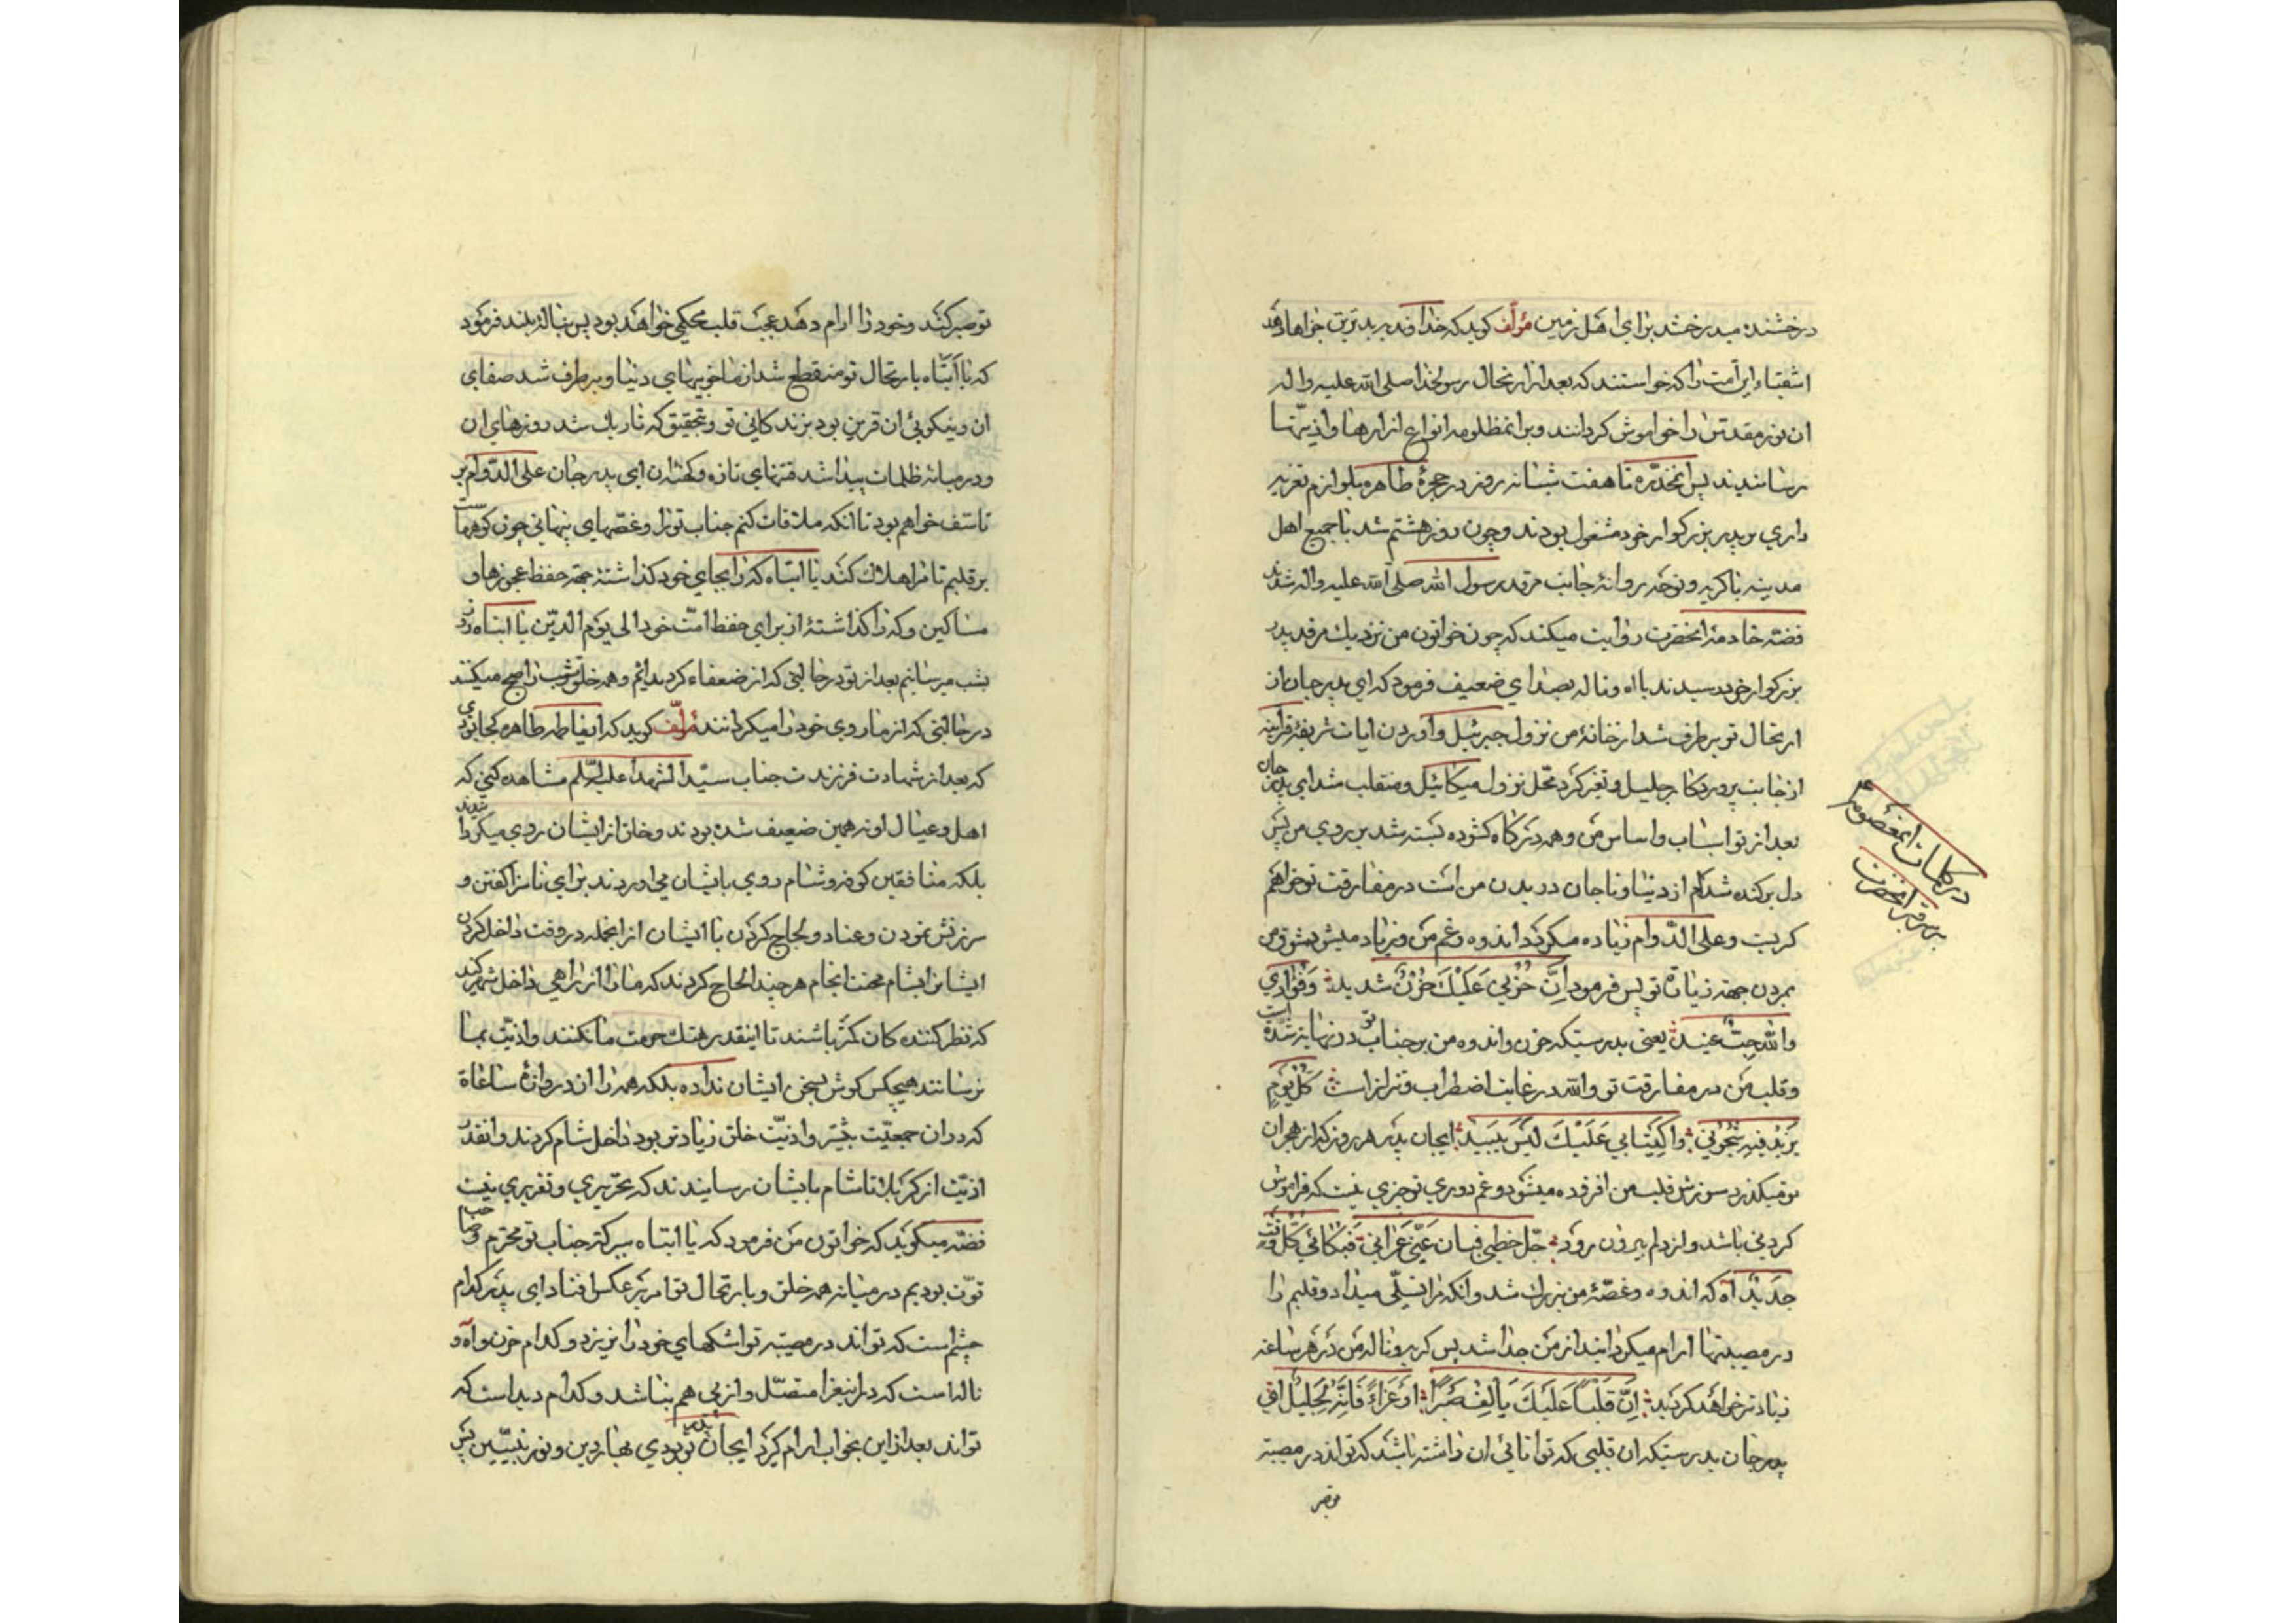 درخشنده میدرخشد برای اهل زمین مؤلف کوید که خداوند بدترین جزاها دهد
اشقیاء این امت را که خواستند که بعد از ارتحال رسولخدا صلی الله علیه و اله
ان نور مقدس را خواموش کردانند و برانمظلومه انواع ازارها و اذیتها
رسانیدند پس انمخدّره تا هفت شبانه روز در حجرۀ طاهره بلوازم تعزیه
داری بر پدر بزرکوار خود مشغول بودند و چون روز هشتم شد با جمیع اهل
مدینه با کریه و نوحه روانۀ جانب مرقد رسول الله صلی الله علیه و اله شدند
فضّه خادمۀ انحضرت روایت میکند که چون خواتون من نزدیك مرقد پدر
بزرکوار خود رسیدند با اه و ناله بصدای ضعیف فرمود که ای پدر جان از
ارتحال تو برطرف شد از خانۀ من نزول جبرئیل و اوردن ایات شریفۀ قرانیه
از جانب پروردکار جلیل و تغیر کرد محّل نزول میکائیل و منقلب شد ای پدر جان
بعد از تو اسباب و اساس من و همه درکاه کشوده بسته شد بر روی من پس
دل برکنده شده‌ام از دنیا و تا جان در بدن من است در مفارقت تو خواهم
کریست و علی الدّوام زیاده میکردد اندوه و غم من و زیاد میشود شوق من
بمردن جهته زیارة تو پس فرمود اِنَّ حُزْنِی عَلَیْكَ حُزْنٌ شدیدٌ وَ فُؤٰادِی
والله صبٌّ عنیدٌ یعنی بدرستیکه حزن و اندوه من بر جناب تو در نهایة شدّة است
و قلب من در مفارقت تو والله در غایت اضطراب و تزلزل است کُلَّ یَوْمٍ
یَزیدُ فیهِ شُجُونی وَ اکْتِیٰابی عَلَیْكَ لَیْسَ یَبیدُ ایجان پدر هر روز که از هجران
تو میکذرد سوزش قلب من افزوده میشود و غم دوری تو چیزی نیست که فراموش
کردنی باشد و از دلم بیرون رود جلّ خطبی فبان عَنّی عَزائی فَبُکٰائی کُلَّ وَقْتٍ
جَدیدٌ اه که اندوه و غصّۀ من بزرك شد و انکه مرا تسلّی میداد و قلبم را
در مصیبتها ارام میکردانید از من جدا شد پس کریه و ناله من در هر ساعة
زیادتر خواهد کردید اِنَّ قَلْبًا عَلَیْكَ یَأْلِفُ صَبْرًا اَوْ عَزٰاءً فَاِنَّهُ لَجَلیدٌ ای
پدر جان بدرستیکه ان قلبی که توانائی ان داشته باشد که تواند در مصیبة
تو صبر
در کلمات انمعصومه ع
بر سر قبر انحضرت
تو صبر کند و خود را ارام دهد عجب قلب محکمی خواهد بود پس بنالۀ بلند فرمود
که یا اَبَتٰاه بارتحال تو منقطع شد از ما خوبیهای دنیا و برطرف شد صفای
ان و نیکوئی ان قرین بود بزندکانی تو و بتحقیق که تاریك شد روزهای ان
و در میانه ظلمات پیدا شد فتنهای تازه و کهنۀ ان ای پدر جان علی الدّوام بر
تاسّف خواهم بود تا انکه ملاقات کنم جناب تو را و غصّهای پنهانی چون کوههاست
بر قلبم تا مرا هلاك کند یا ابتاه که را بجای خود کذاشتۀ جهته حفظ عجوزها و
مساکین و که را کذاشتۀ از برای حفظ امّت خود الی یوم الدّین یا ابتاه روز
بشب میرسانیم بعد از تو در حالتی که از ضعفاء کردیده‌ایم و همه خلق شب را صبح میکنند
در حالتی که از ما روی خود را میکردانند مؤلّف کوید که ایفاطمه طاهره کجا بودی
که بعد از شهادت فرزندت جناب سیّد الشهداء علیه السلام مشاهده کنی که
اهل و عیال او نیز همین ضعیف شده بودند و خلق از ایشان روی میکردانیدند
بلکه منافقین کوفه و شام روی بایشان می‌اوردند برای ناسزا کفتن و
سرزنش نمودن و عناد و لجاج کردن با ایشان از انجمله در وقت داخل کردن
ایشان بشام محنت انجام هر چند الحاح کردند که ما را از راهی داخل شهر کنید
که نظر کننده کان کمتر باشند تا اینقدر هتك حرمت ما نکنند و اذیّت بما
نرسانند هیچکس کوش بسخن ایشان نداده بلکه همه را از دروازۀ ساعاة
که در ان جمعیّت بیشتر و اذیّت خلق زیادتر بود داخل شام کردند و انقدر
اذیّت از کربلا تا شام بایشان رسانیدند که تحریری و تقریری نیست
فضّه میکوید که خواتون من فرمود که یا ابتاه ببرکتهٔ جناب تو محترم و صاحب
قوّت بودیم در میانه همه خلق و بارتحال تو امر بر عکس افتاد ای پدر کدام
چشم است که تواند در مصیبة تو اشکهای خود را نریزد و کدام حزن و اه و
ناله است که در اینعزا متصّل و از پی هم نباشد و کدام دیده است که
تواند بعد از این بخواب ارام کیرد ایجان پدر تو بودی بهار دین و نور نبیّین پس